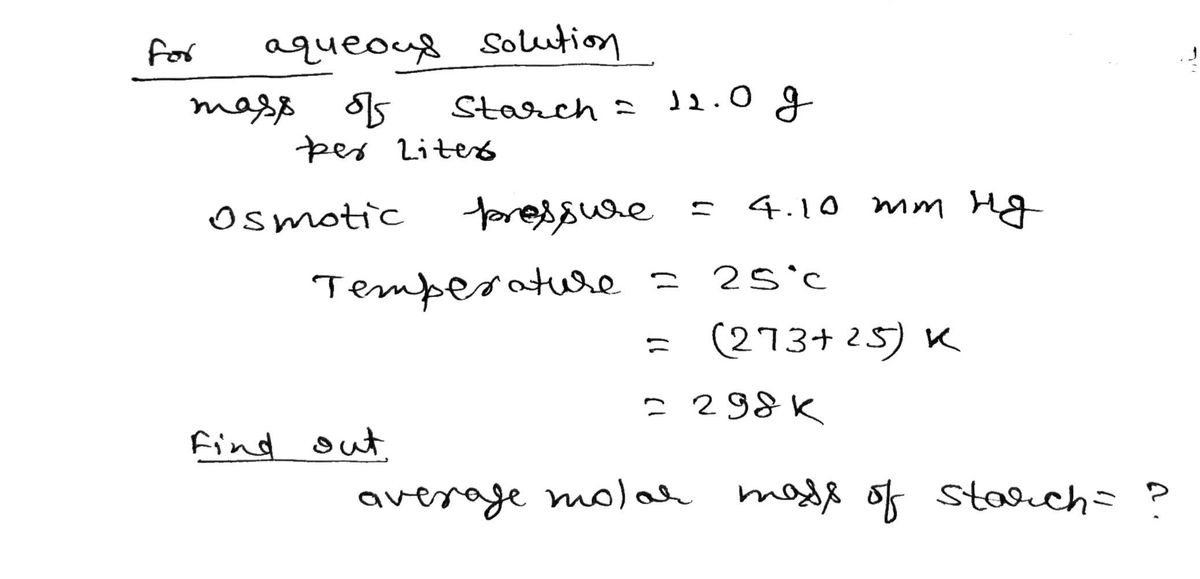 For aqueous solution
mass of starch = 12.0 g
per Liter
Osmotic pressure = 4.10 mm Hg
Temperature = 25°C
= (273+25) K
= 298K
Find out
average molar mass of starch = ?